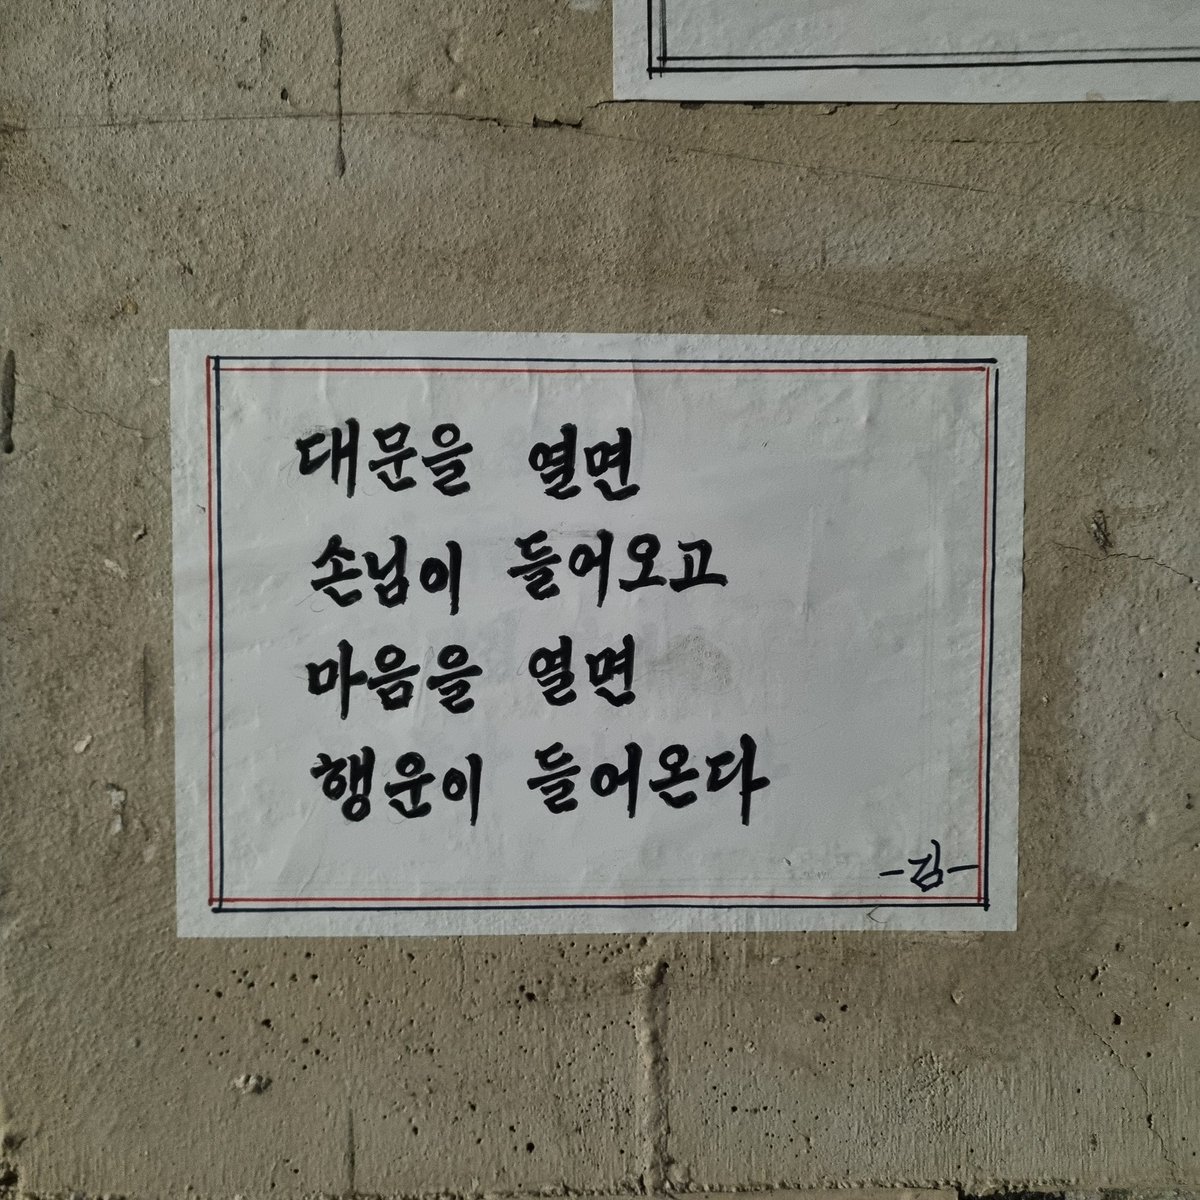 대문을 열면
손님이 들어오고
마음을 열면
행운이 들어온다
-김-